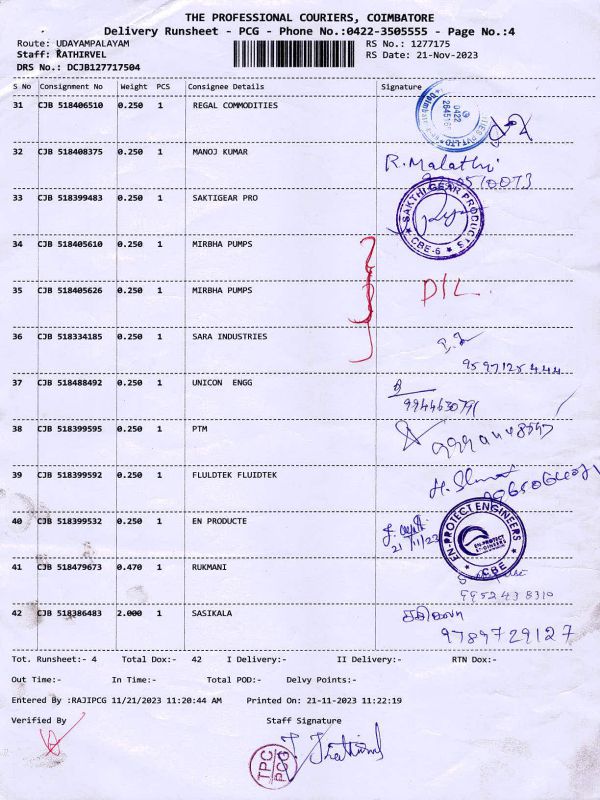 THE PROFESSIONAL COURIERS, COIMBATORE
Delivery Runsheet - PCG - Phone No.:0422-3505555 - Page No.:4
Route: UDAYAMPALAYAM RS No.: 1277175
Staff: KATHIRVEL RS Date: 21-Nov-2023
DRS No.: DCJB127717504
S No Consignment No Weight PCS Consignee Details Signature
31 CJB 518406510 0.250 1 REGAL COMMODITIES
0422
32 CJB 518408375 0.250 1 MANOJ KUMAR R. Malathi
33 CJB 518399483 0.250 1 SAKTIGEAR PRO
SAKTHI GEAR PRODUCTS
CBE-6
34 CJB 518405610 0.250 1 MIRBHA PUMPS
35 CJB 518405626 0.250 1 MIRBHA PUMPS D/L
36 CJB 518334185 0.250 1 SARA INDUSTRIES
9597125444
37 CJB 518488492 0.250 1 UNICON ENGG
38 CJB 518399595 0.250 1 PTM
39 CJB 518399592 0.250 1 FLULDTEK FLUIDTEK
40 CJB 518399532 0.250 1 EN PRODUCTE
21/11/23
EN-PROTECT ENGINEERS
CBE
41 CJB 518479673 0.470 1 RUKMANI
9952438310
42 CJB 518386483 2.000 1 SASIKALA சசிகலா
9789729127
Tot. Runsheet:- 4 Total Dox:- 42 I Delivery:- II Delivery:- RTN Dox:-
Out Time:- In Time:- Total POD:- Delvy Points:-
Entered By :RAJIPCG 11/21/2023 11:20:44 AM Printed On: 21-11-2023 11:22:19
Verified By Staff Signature
TPC
PCG